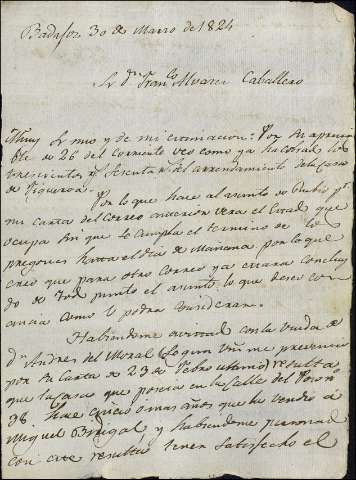 Badajoz 30 de Marzo de 1824
Sr dn Franco Alvarez Caballero
Muy Sr mio y de mi estimacion: Por su aprecia
ble de 26 del corriente veo como ya ha cobrado los
trescientos y sesenta rs del arrendamiento de la Casa
de Figueroa.
Por lo que hace al asunto de Rubio pr
mi carta del correo anterior vera el Estado que
ocupa sin que se cumpla el termino de los
pregones hasta el dia de Mañana por lo que
creo que para otro Correo ya estara conclui
do de todo punto el asunto, lo que deseo con
ancia como lo podra considerar.
Habiendome avistado con la Viuda de
dn Andres del Moral (segun Vm me previene
por su carta de 23 de Febro ultimo) resulta
que la casa que poseia en la Calle del
38 hace cinco o mas años que la vendio a
Miguel y habiendome personado
con este resulta tener satisfecho el